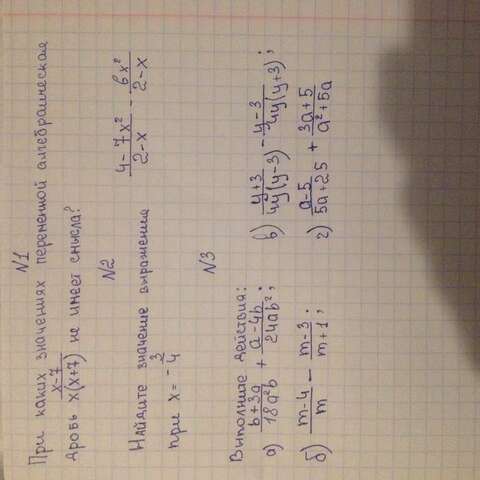 N1
При каких значениях переменной алгебраическая
дробь (x-7)/(x(x+7)) не имеет смысла?
N2
Найдите значение выражения (4-7x²)/(2-x) - (6x²)/(2-x)
при x = -3/4
N3
Выполните действия:
а) (b+3a)/(18a²b) + (a-4b)/(24ab²); в) (y+3)/(4y(y-3)) - (y-3)/(4y(y+3));
б) (m-4)/m - (m-3)/(m+1); г) (a-5)/(5a+25) + (3a+5)/(a²+5a)